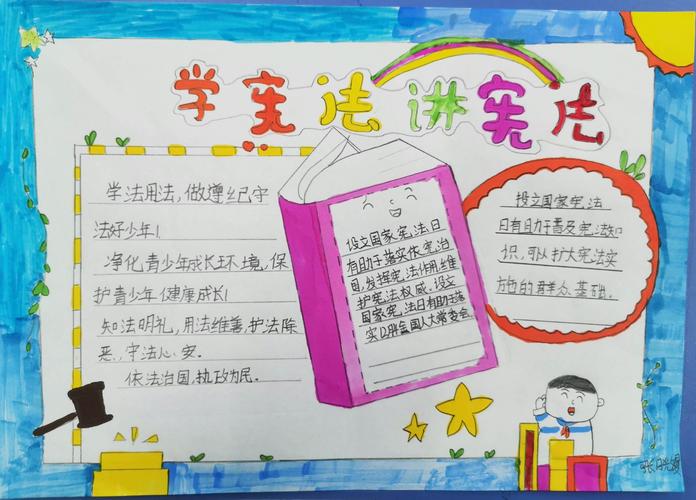 学宪法讲宪法
学法用法,做遵纪守
法好少年!
净化青少年成长环境,保
护青少年健康成长!
知法明礼,用法维善,护法除
恶,守法心安。
依法治国,执政为民。
设立国家宪法日
有助于落实依宪治
国,发挥宪法作用,维
护宪法权威。设立
国家宪法日有助于落
实以胖全国人大常委会
投立国家宪法
日有助于普及宪法知
识,可以扩大宪法实
施的群众基础。